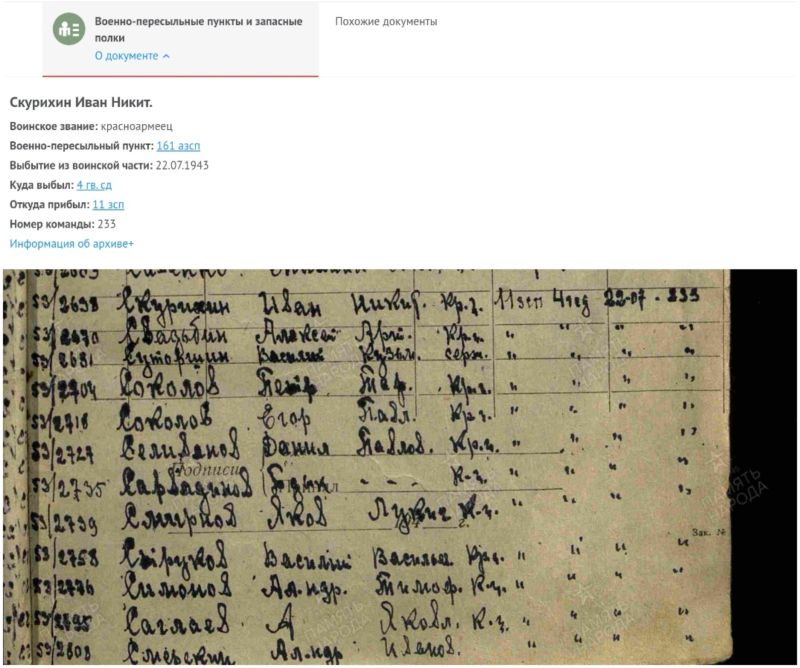 Военно-пересыльные пункты и запасные
полки
О документе
Похожие документы
Скурихин Иван Никит.
Воинское звание: красноармеец
Военно-пересыльный пункт: 161 азсп
Выбытие из воинской части: 22.07.1943
Куда выбыл: 4 гв. сд
Откуда прибыл: 11 зсп
Номер команды: 233
Информация об архиве+
53/2638 Скурихин Иван Никит. Кр-ц 11 зсп 4 гсд 22-07 - 233
53/2670 Алексей Кр-ц " " " "
53/2681 Василий Кузьм. серж. " " " "
53/2704 Соколов Петр Кр-ц " " " "
53/2718 Соколов Егор Павл. Кр-ц " " " "
53/2727 Селиванов Данил Павлов. Кр-ц " " " "
Подписи
53/2735 - - - К-ц " " " "
53/2739 Смирнов Яков Лукич К-ц " " " "
Зак. №
53/2758 Василий Василь Кр-ц " " " "
Симонов Ал-ндр. Тимоф. К-ц " " " "
Саглаев А Яковл. К-ц " " " "
53/2808 Ал-ндр Иванов. " " " "
ПАМЯТЬ НАРОДА